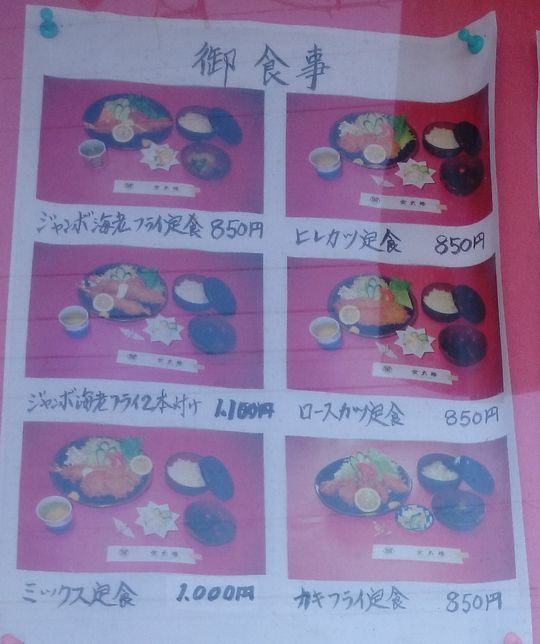 御食事
ジャンボ海老フライ定食 850円
ヒレカツ定食 850円
ジャンボ海老フライ2本付け 1,100円
ロースカツ定食 850円
ミックス定食 1,000円
カキフライ定食 850円